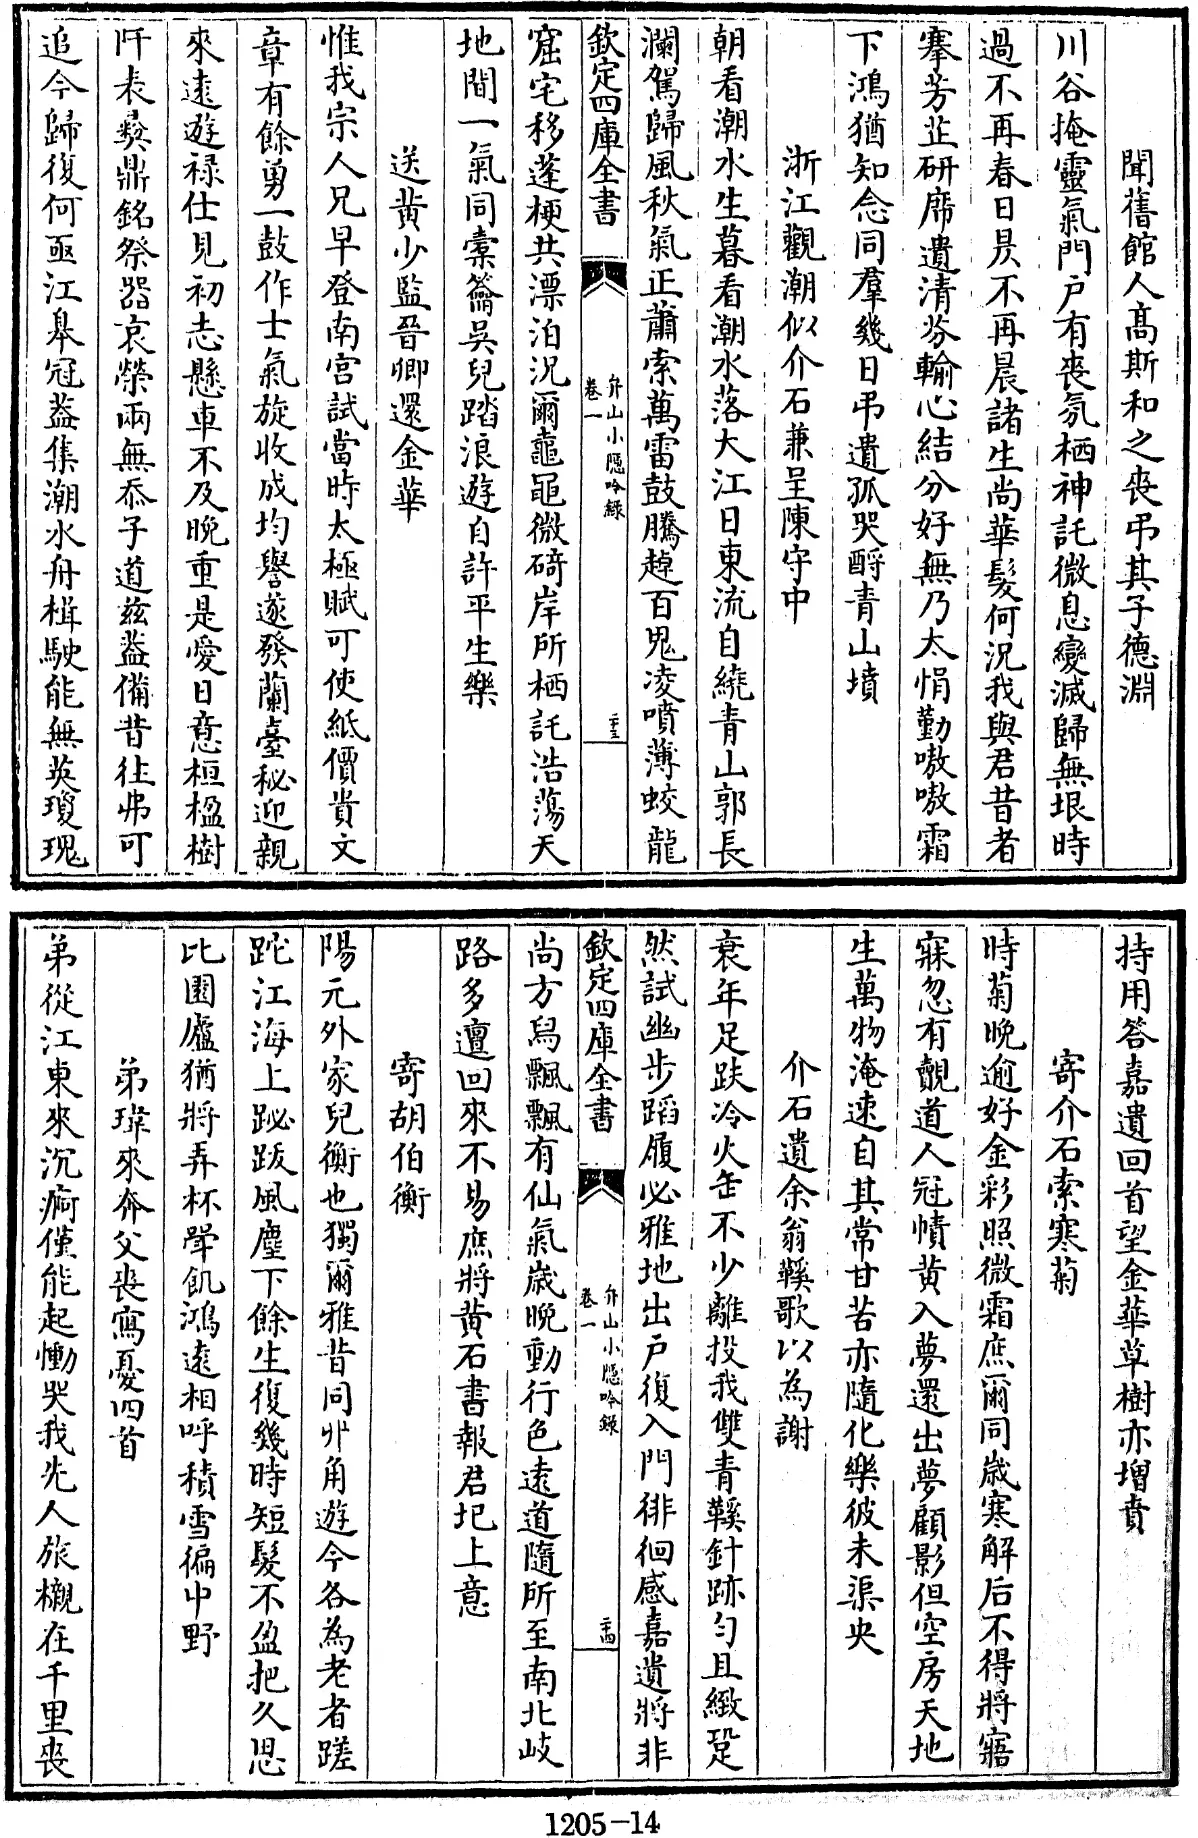 聞舊館人髙斯和之喪弔其子德淵
川谷掩靈氣門戸有喪氛栖神託微息變滅歸無垠時
過不再春日昃不再晨諸生尚華髮何況我與君昔者
搴芳芷研席遺清芬輸心結分好無乃太悁勤嗷嗷霜
下鴻猶知念同羣幾日弔遺孤哭酹青山墳
浙江觀潮似介石兼呈陳守中
朝看潮水生暮看潮水落大江日東流自繞青山郭長
瀾駕歸風秋氣正蕭索萬雷鼓騰趠百鬼凌噴薄蛟龍
欽定四庫全書
弁山小隱吟録
卷一
二十三
窟宅移蓬梗共漂泊況爾龜黽微碕岸所栖託浩蕩天
地間一氣同橐籥吳兒踏浪遊自許平生樂
送黄少監晉卿還金華
惟我宗人兄早登南宫試當時太極賦可使紙價貴文
章有餘勇一鼓作士氣旋收成均譽遂發蘭臺秘迎親
來逺遊禄仕見初志懸車不及晩重是愛日意桓楹樹
阡表彛鼎銘祭器哀榮兩無忝子道兹葢備昔往弗可
追今歸復何亟江臯冠葢集潮水舟楫駛能無英瓊瑰
持用答嘉遺回首望金華草樹亦增賁
寄介石索寒菊
時菊晩逾好金彩照微霜庶爾同歳寒解后不得將寤
寐忽有覿道人冠幘黄入夢還出夢顧影但空房天地
生萬物淹速自其常甘苦亦隨化樂彼未渠央
介石遺余翁鞵歌以為謝
衰年足趺冷火缶不少離投我雙青鞵針跡匀且緻跫
然試幽步蹈履必雅地出戸復入門徘徊感嘉遺將非
欽定四庫全書
弁山小隱吟録
卷一
二十四
尚方舄飄飄有仙氣歳晩動行色逺道隨所至南北岐
路多邅回來不易庶將黄石書報君圯上意
寄胡伯衡
陽元外家兒衡也獨爾雅昔同丱角遊今各為老者蹉
跎江海上跛跋風塵下餘生復幾時短髮不盈把久思
比園廬猶將弄杯斝飢鴻逺相呼積雪徧中野
弟瑋來奔父喪寫憂四首
弟從江東來沉痾僅能起慟哭我先人旅櫬在千里喪
1205-14